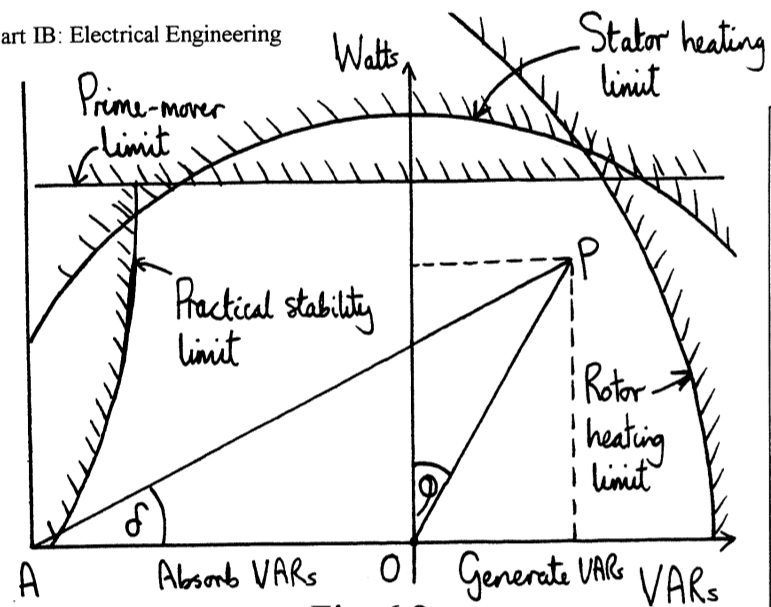 art IB: Electrical Engineering
Watts
Stator heating
limit
Prime-mover
limit
P
Practical stability
limit
Rotor
heating
limit
δ
Φ
A
Absorb VARs
O
Generate VARs
VARs